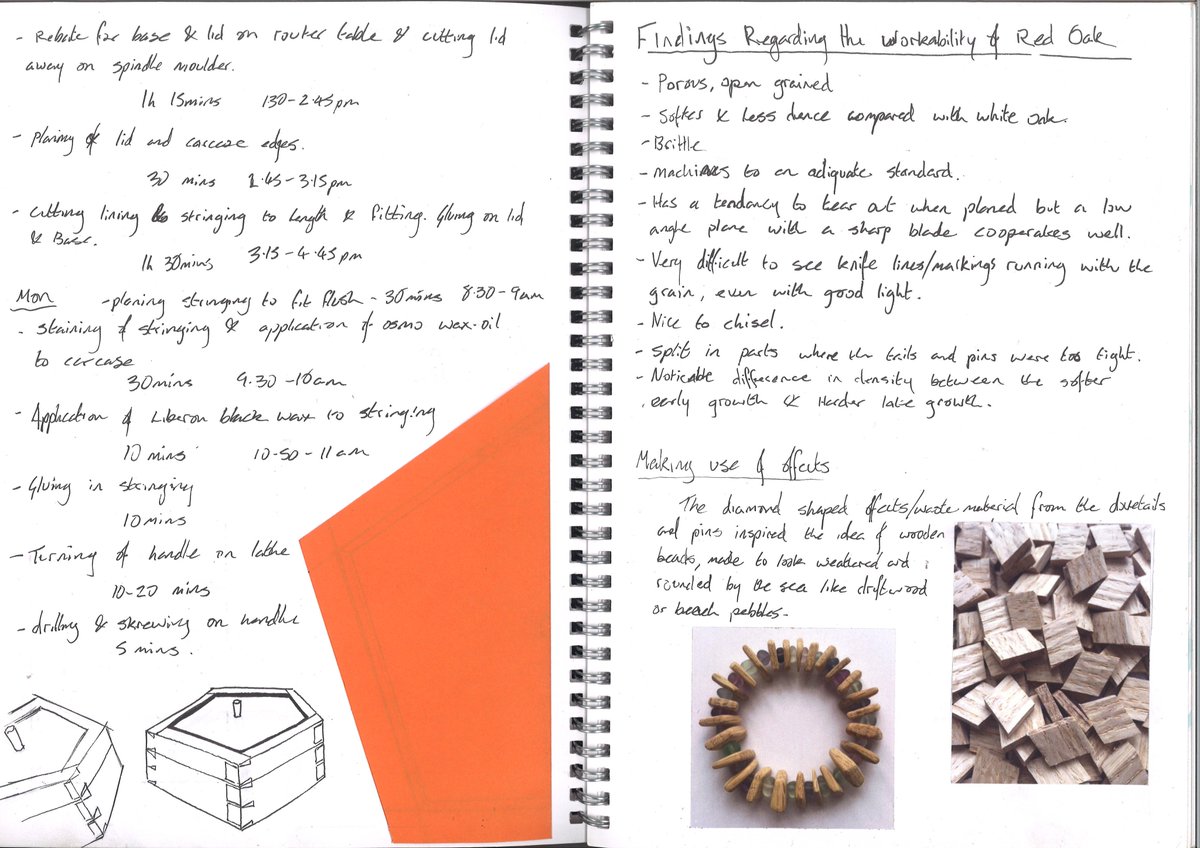 - Rebate for base & lid on router table & cutting lid
away on spindle moulder.
1h 15mins 130-2.45pm
- planing of lid and carcase edges.
30 mins 2.45-3.15pm
- cutting lining & stringing to length & fitting. Gluing on lid
& Base.
1h 30mins 3.15-4.45pm
Mon - planing stringing to fit flush - 30mins 8.30-9am
- Staining of stringing & application of osmo wax-oil
to carcase
30mins 9.30-10am
- Application of Liberon black wax to stringing
10 mins 10-50-11am
- Gluing in stringing
10mins
- Turning of handle on lathe
10-20 mins
- drilling & skrewing on handle
5 mins.
Findings Regarding the Workability of Red Oak
- Porous, open grained
- Softer & less dence compared with white Oak.
- Brittle
- Machines to an adiquate standard.
- Has a tendancy to tear out when planed but a low
angle plane with a sharp blade cooperates well.
- Very difficult to see knife lines/markings running with the
grain, even with good light.
- Nice to chisel.
- Split in parts where the tails and pins were too tight.
- Noticable difference in density between the softer
early growth & Harder late growth.
Making use of offcuts
The diamond shaped offcuts/waste material from the dovetails
and pins inspired the idea of wooden
beads, made to look weathered and
rounded by the sea like driftwood
or beach pebbles-